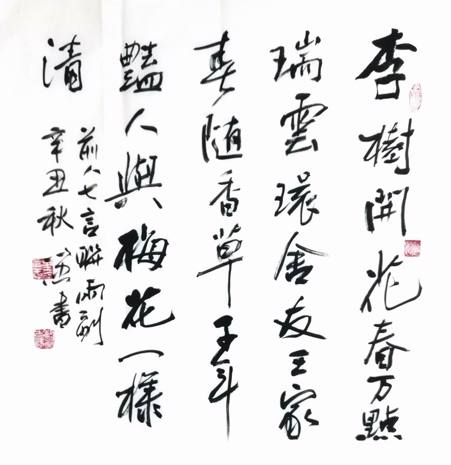 李樹開花春万點
瑞雲環舍友王家
春随香草千年
豔人與梅花一樣
清
前人七言聯兩副
辛丑秋 書